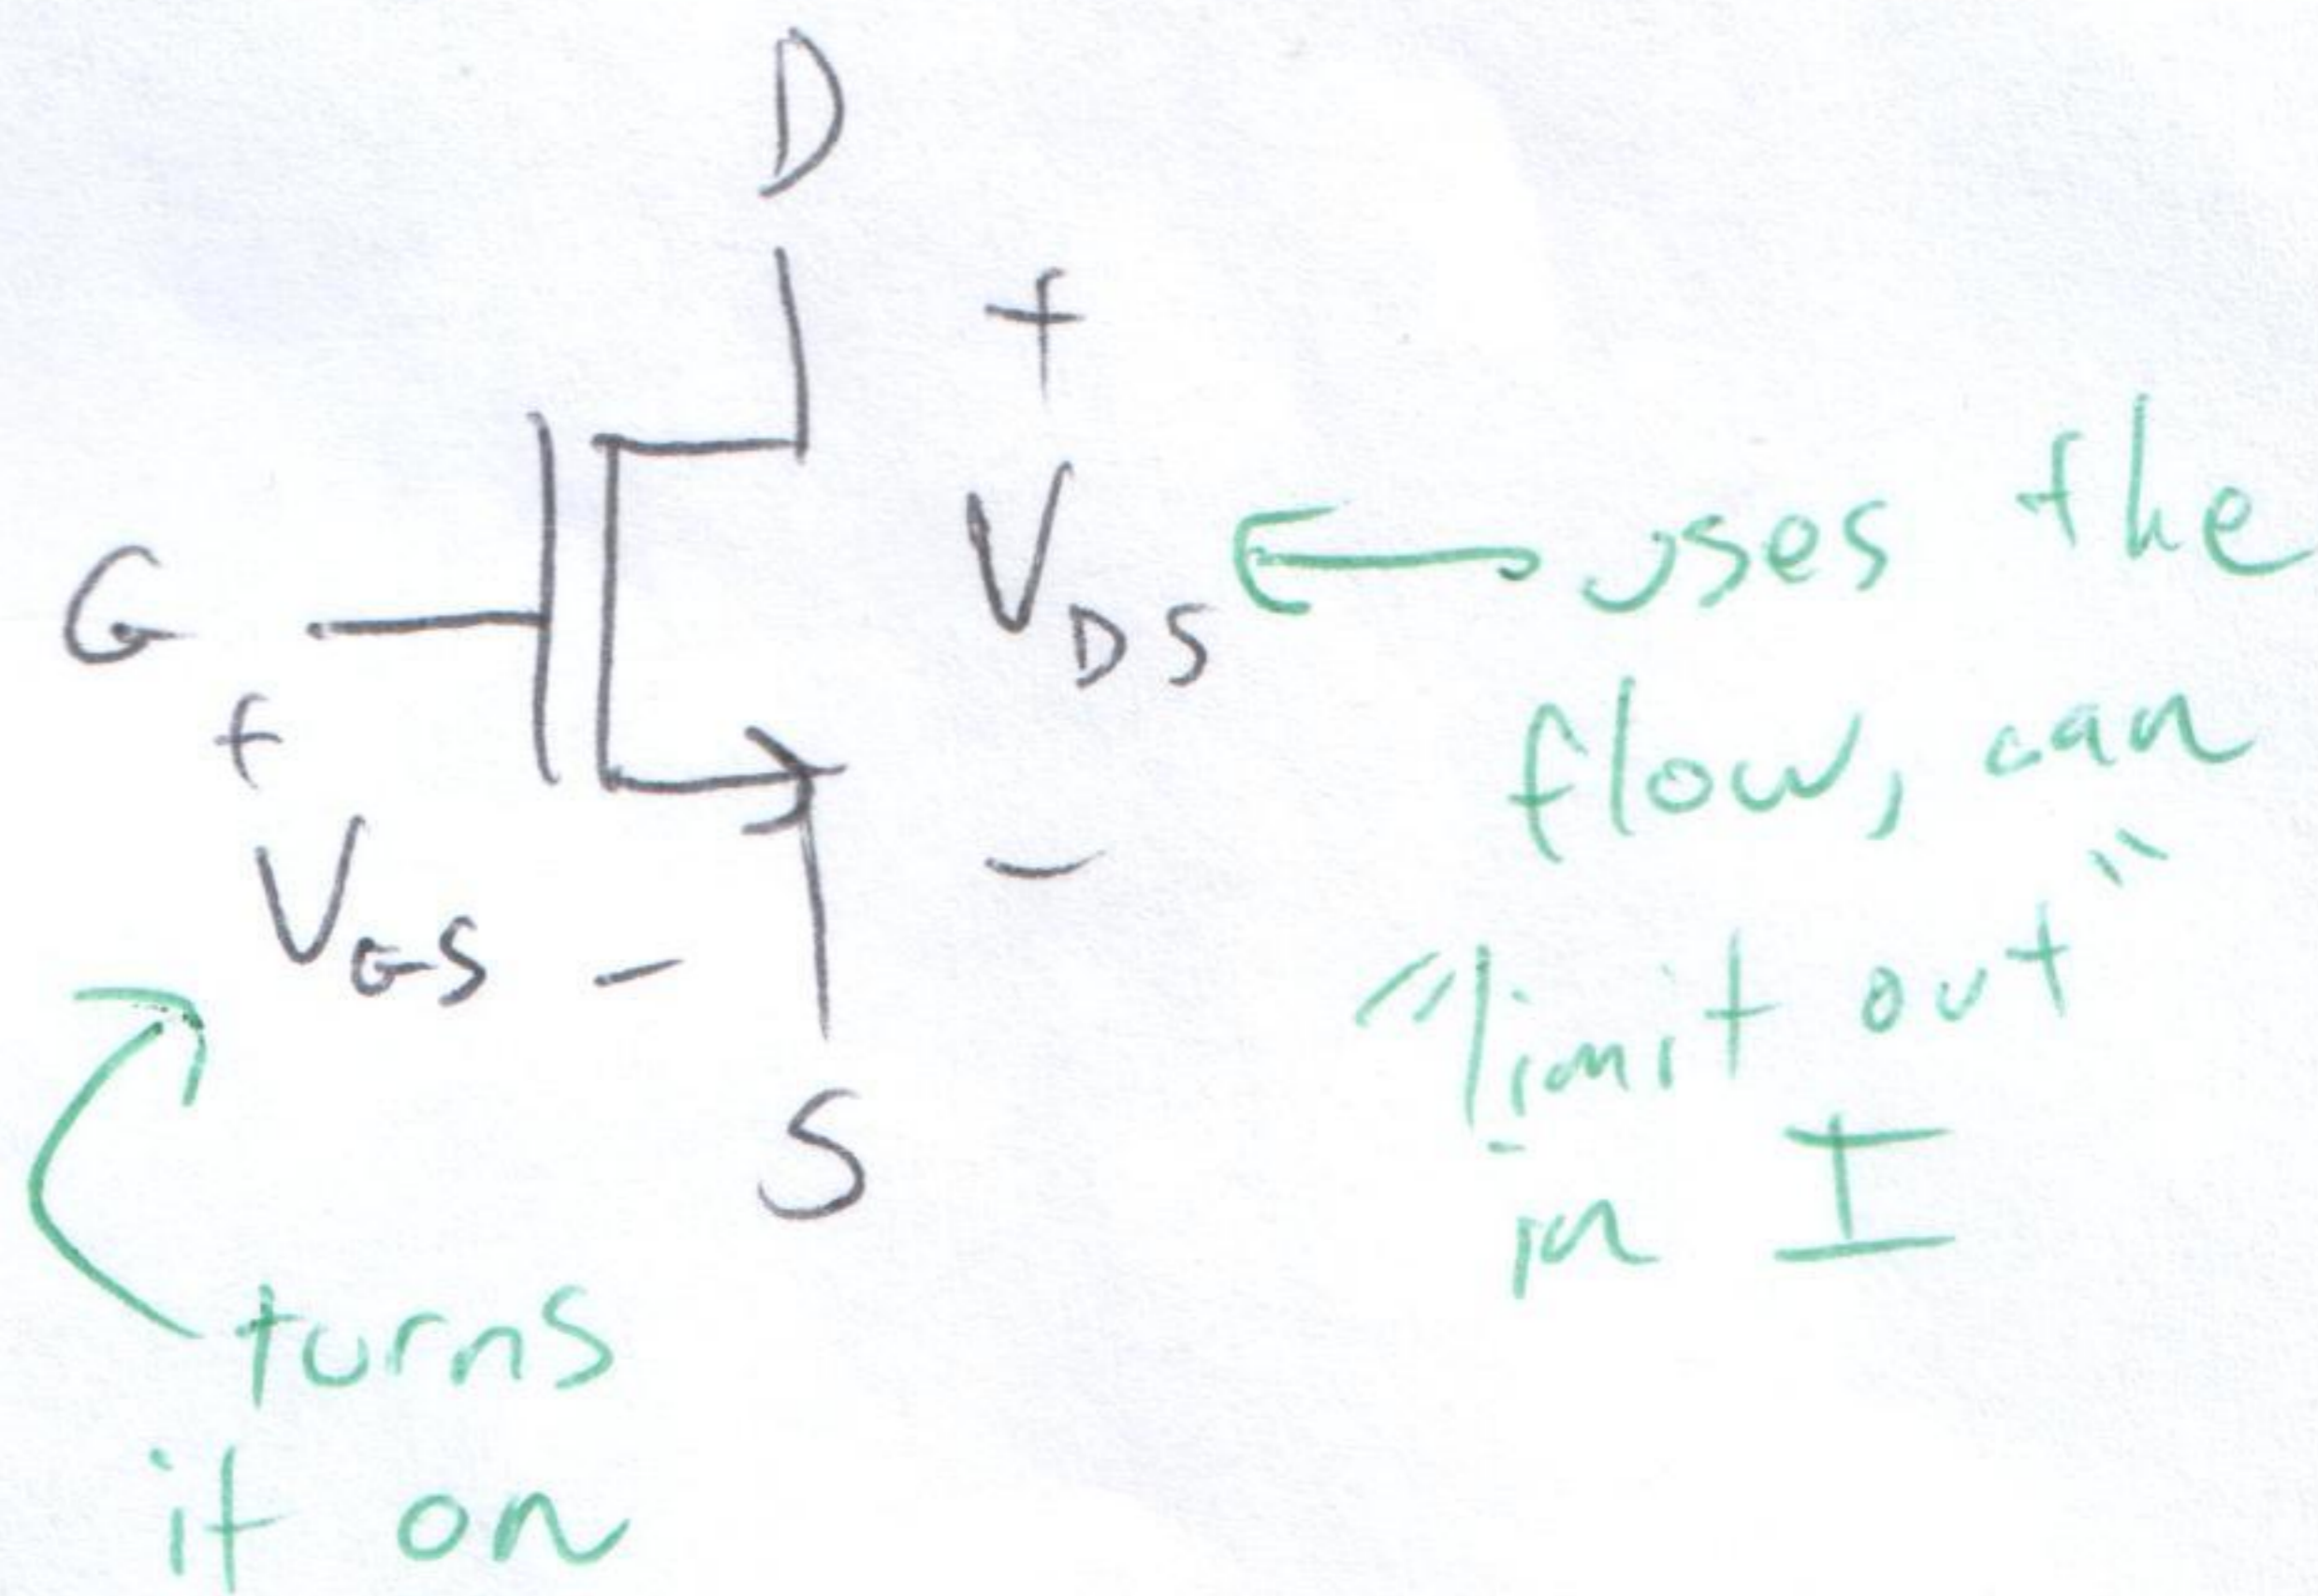 D
+
G
V_DS
uses the
+
flow, can
V_GS -
-
"limit out"
in I
S
turns
it on